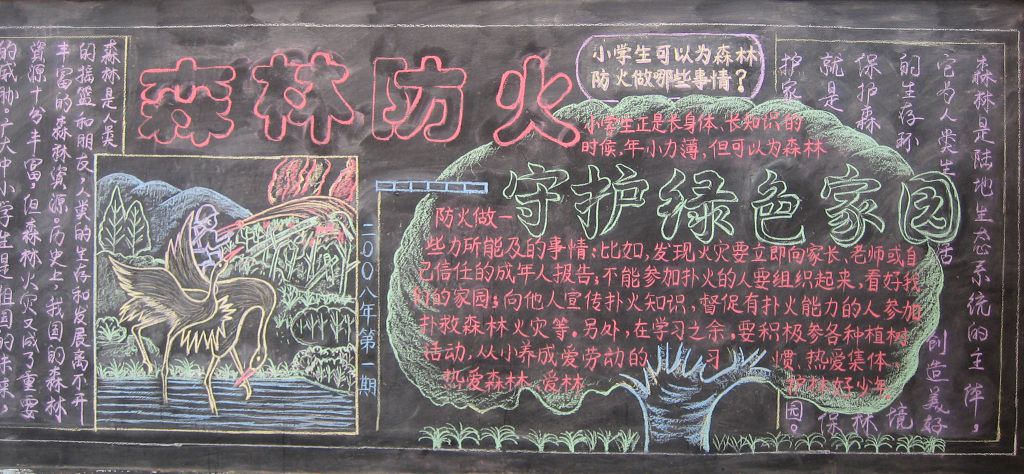 森林防火
小学生可以为森林
防火做哪些事情？
守护绿色家园
小学生正是长身体、长知识的
时候，年小力薄，但可以为森林
防火做一
些力所能及的事情：比如，发现火灾要立即向家长、老师或自
己信任的成年人报告；不能参加扑火的人要组织起来，看好我
们的家园；向他人宣传扑火知识，督促有扑火能力的人参加
扑救森林火灾等。另外，在学习之余，要积极参各种植树
活动，从小养成爱劳动的 习 惯，热爱集体
热爱森林、爱林 护林好少年
二00八年第一期
森林是陆地生态系统的主体，
它为人类生活 创造美好
的生存环境
保护森林
就是保
护家园。
森林是人类
的摇篮和朋友，人类的生存和发展离不开
丰富的森林资源，历史上，我国的森林
資源十分丰富，但森林火灾又成了重要
的威胁，广大中小学生是祖国的未来，